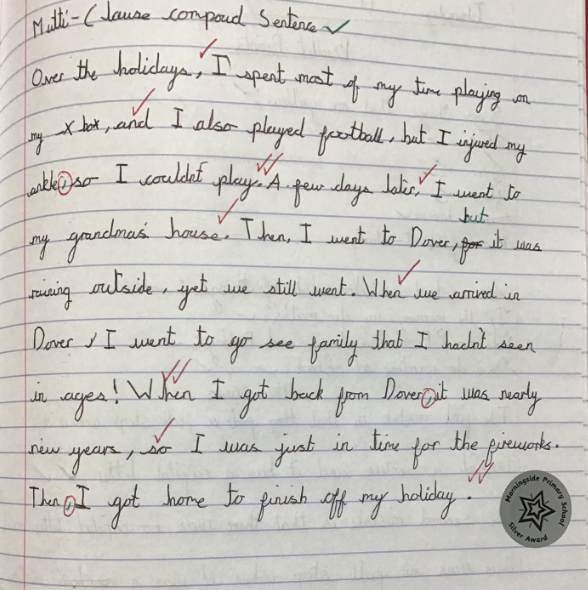 Multi-Clause compoud Sentence
Over the holidays, I spent most of my time playing on
my x box, and I also played football, but I injured my
ankle, so I couldn't play. A few days later, I went to
but
my grandma's house. Then, I went to Dover, for it was
raining outside, yet we still went. When we arrived in
Dover, I went to go see family that I hadn't seen
in ages! When I got back from Dover, it was nearly
new years, so I was just in time for the fireworks.
Then, I got home to finish off my holiday.
Morningside Primary School
Silver Award